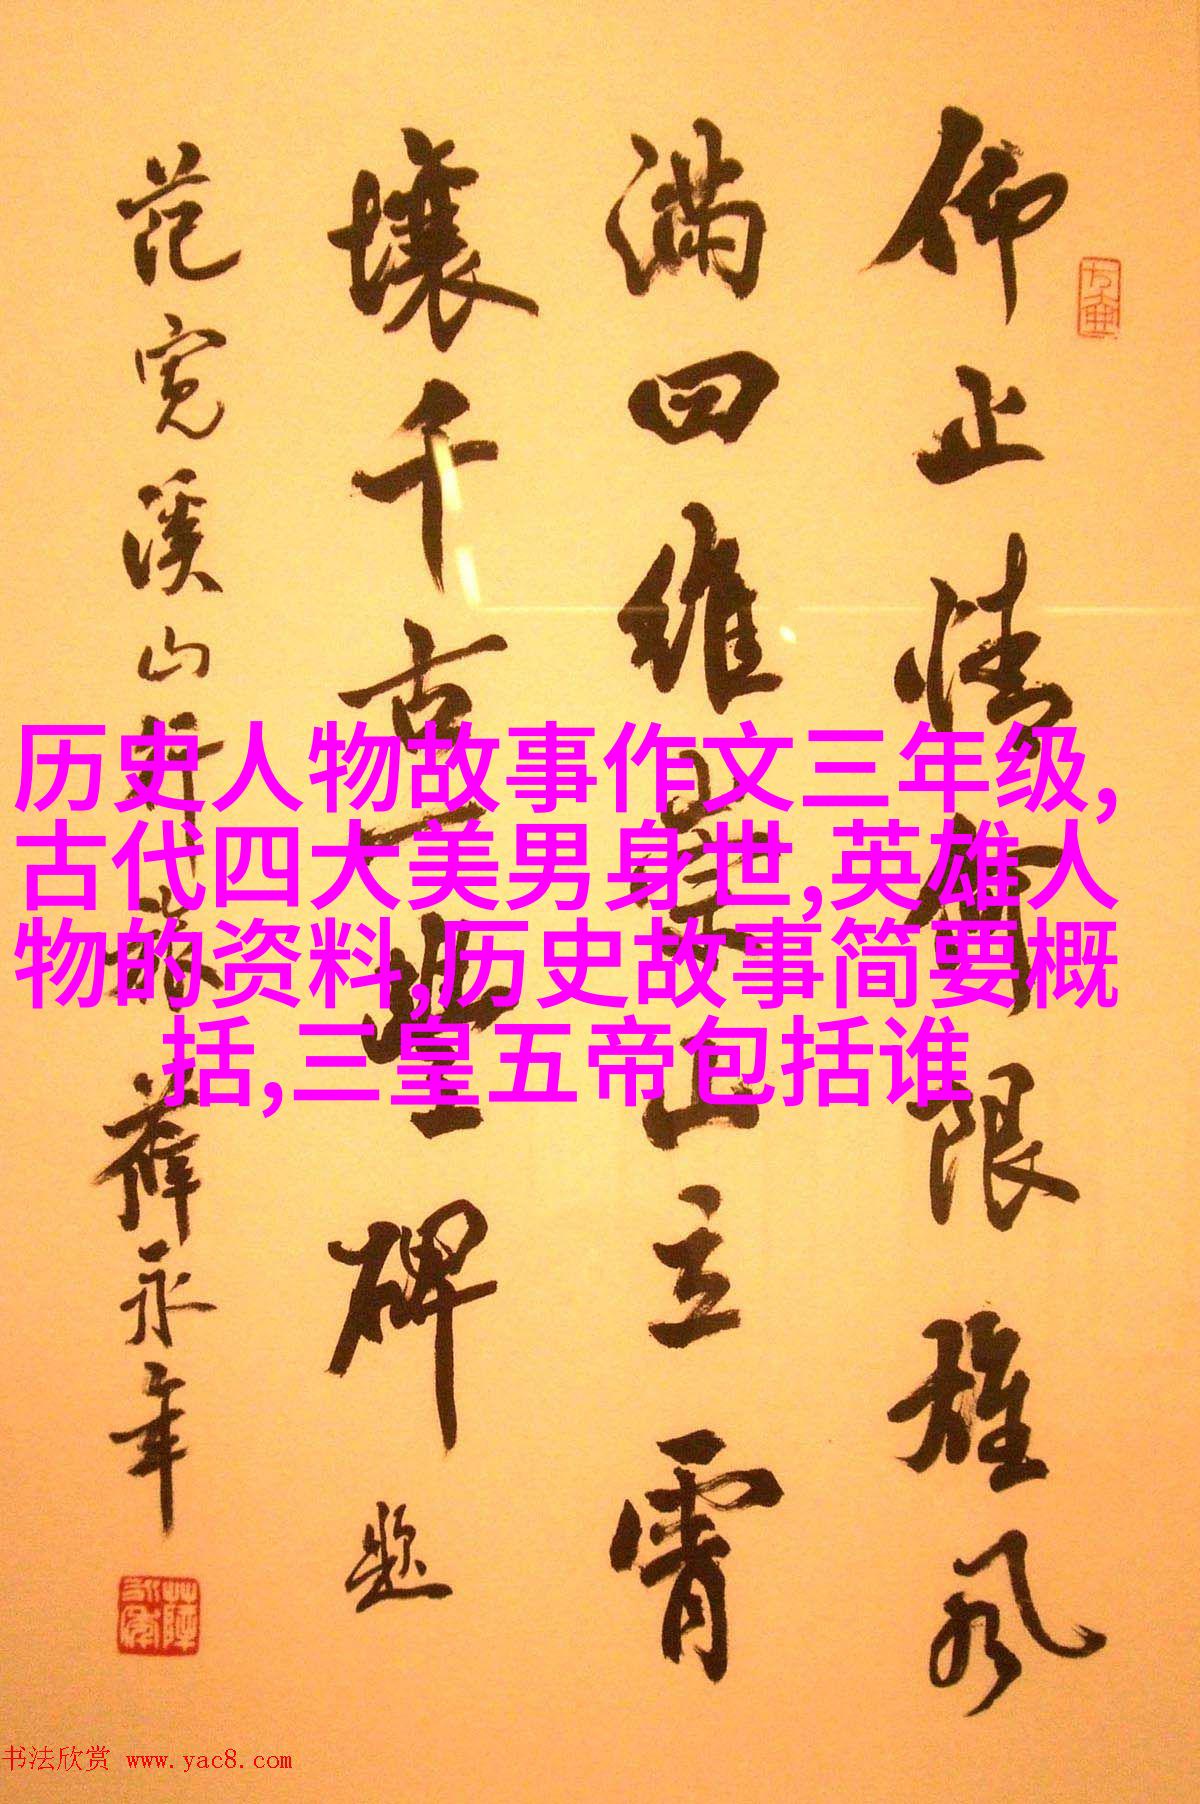 历史人物故事作文三年级,
古代四大美男身世,英雄人
物的资料,历史故事简要概
括,三皇五帝包括谁
仰止情何限雄风
满四维崇山立霄
壤千古一碑题
范宽溪山行旅薛永年
书法欣赏 www.yac8.com